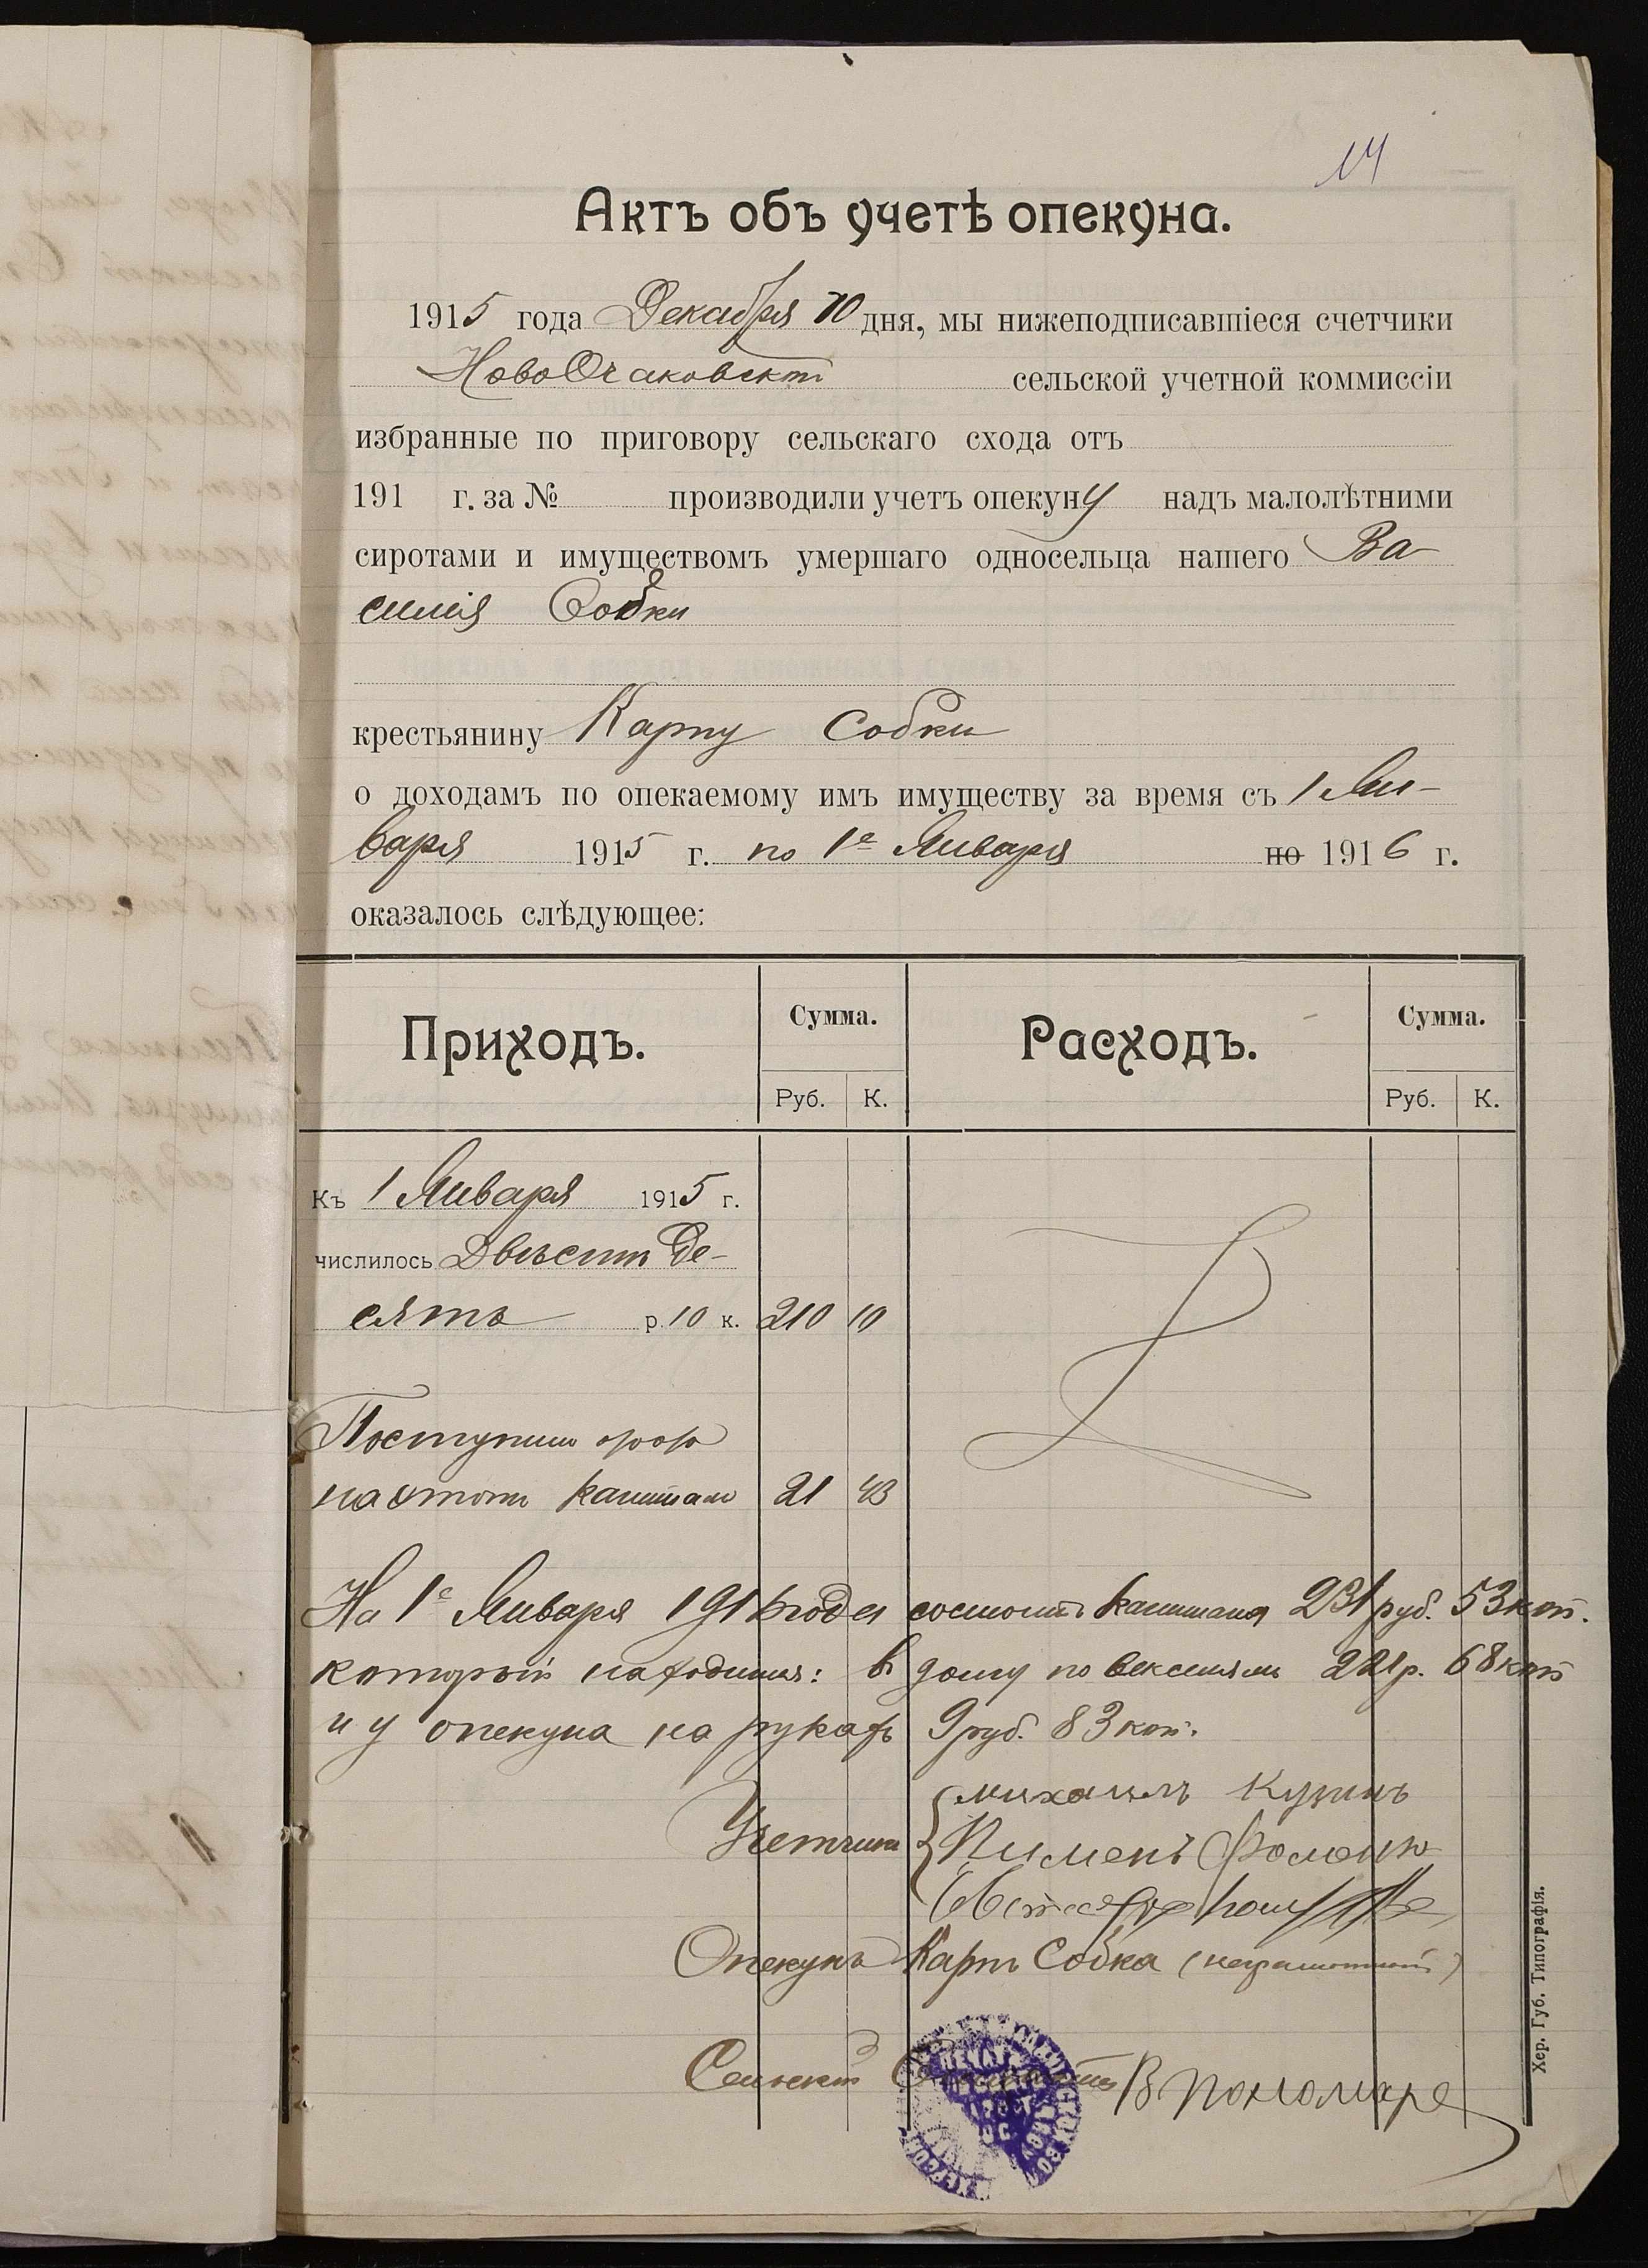 14
Актъ объ учетѣ опекуна.
1915 года Декабря 10 дня, мы нижеподписавшіеся счетчики
НовоОчаковской сельской учетной коммиссіи
избранные по приговору сельскаго схода отъ
191 г. за № производили учетъ опекуну надъ малолѣтними
сиротами и имуществомъ умершаго односельца нашего Ва-
силія Собки
крестьянину Карпу Собки
о доходамъ по опекаемому имъ имуществу за время съ 1 Ян-
варя 1915 г. по 1е Января по 1916 г.
оказалось слѣдующее:
Приходъ. Сумма. Расходъ. Сумма.
Руб. К. Руб. К.
Къ 1 Января 1915 г.
числилось Двѣсти де-
сять р. 10 к. 210 10
Поступило
на этотъ капиталъ 21 43
На 1е Января 1916 года состоитъ капитала 231 руб. 53 коп.
который находится: въ долгу по векселямъ 221 р. 68 коп
и у опекуна на рукахъ 9 руб. 83 коп.
Учетчики
Михаилъ Кузинъ
Пименъ Фоменко
Опекунъ Карпъ Собка (неграмотный)
Сельскій Староста В Пономаре
Хер. Губ. Типографія.